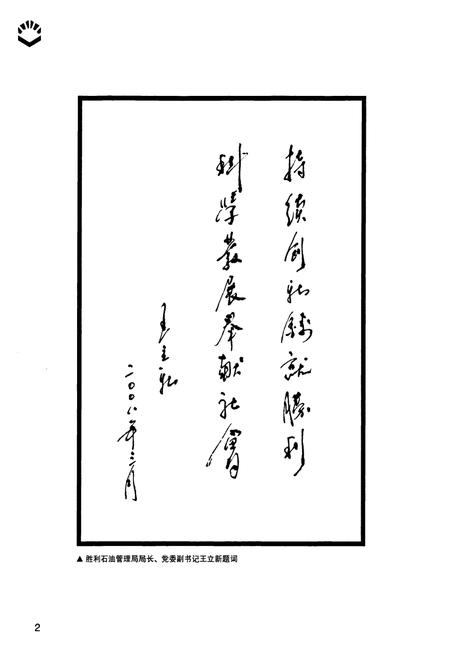 持续创新铸就胜利
科学发展奉献社会
王立新
二〇〇八年三月
▲ 胜利石油管理局局长、党委副书记王立新题词
2